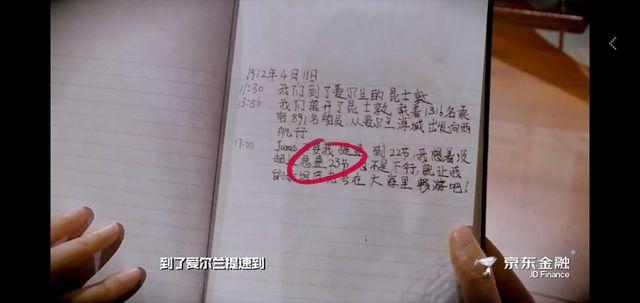 1912年4月11日
11:30 我们到了爱尔兰的昆士敦
13:56 我们离开了昆士敦,载着1316名乘
客891名船员,从爱尔兰海域出发向西
航行
17:00 James 要我提速到22节,我想着没
超过 23节 不是不行,就让我
在大海里畅游吧!
到了爱尔兰提速到
京东金融
JD Finance